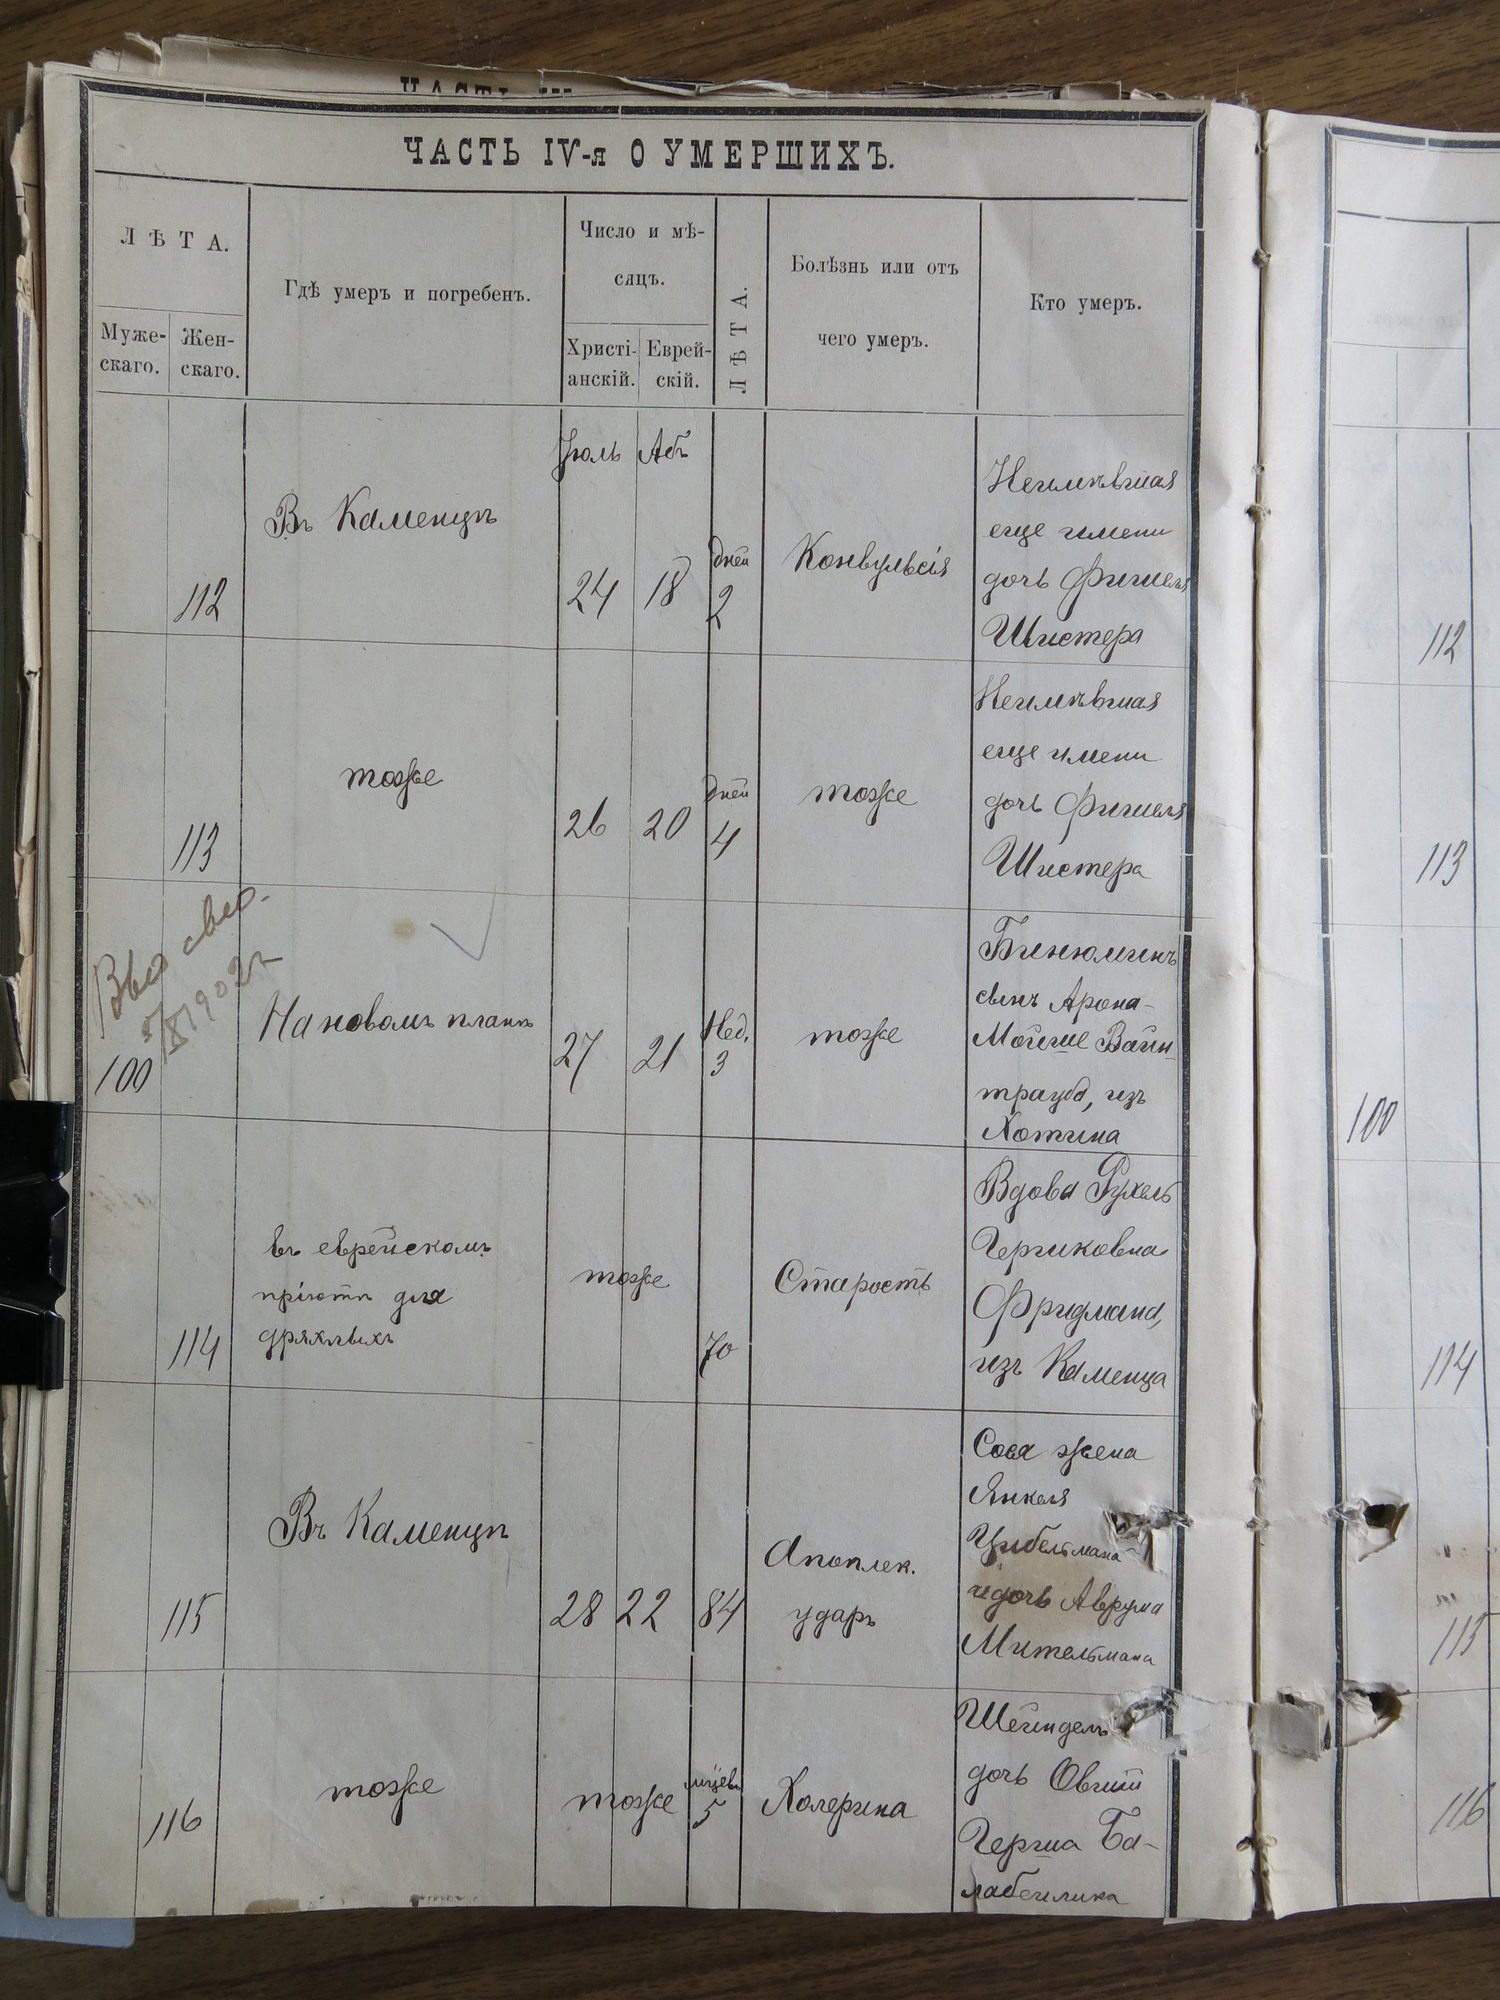 ЧАСТЬ IV-я О УМЕРШИХЪ.
ЛѢТА.
Муже-
скаго.
Жен-
скаго.
Гдѣ умеръ и погребенъ.
Число и мѣ-
сяцъ.
Христі-
анскій.
Еврей-
скій.
ЛѢТА.
Болѣзнь или отъ
чего умеръ.
Кто умеръ.
Іюль Абъ
112
Въ Каменцѣ
24 18
дней
2
Конвульсія
Неимѣвшая
еще имени
дочь Фишеля
Шистера
112
113
тоже
26 20
дней
4
тоже
Неимѣвшая
еще имени
дочь Фишеля
Шистера
113
1902 г
100
На новомъ планѣ
27 21
Нед.
3
тоже
Бинюминъ
сынъ Арона-
Мойше Вайн-
трауба, изъ
Хотина
100
114
въ еврейскомъ
пріютѣ для
дряхлыхъ
тоже
70
Старость
Вдова Рухель
Гершковна
Фридмана,
изъ Каменца
114
115
Въ Каменцѣ
28 22
84
Апоплек.
ударъ
Сося жена
Янкеля
Цибельмана
и дочь Аврума
Мительмана
115
116
тоже
тоже
5
Холерина
Шейндель
дочь Овший
Герша Ба-
лабейлика
116